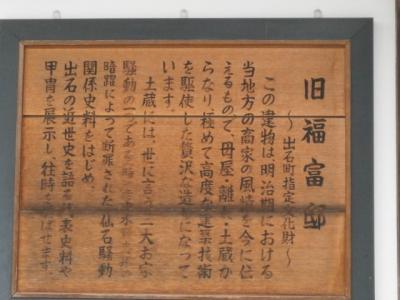 旧福富邸
〜出石町指定文化財〜
この建物は明治期における
当地方の商家の風情を今に伝
えるもので、母屋、離れ、土蔵か
らなり、極めて高度な建築技術
を駆使した贅沢な造りになって
います。
土蔵には、世に言う三大お家
騒動の一つである
暗躍によって断罪された仙石騒動
関係史料をはじめ、
出石の近世史を語る 表史料や
甲冑を展示し、往時を偲ばせます。